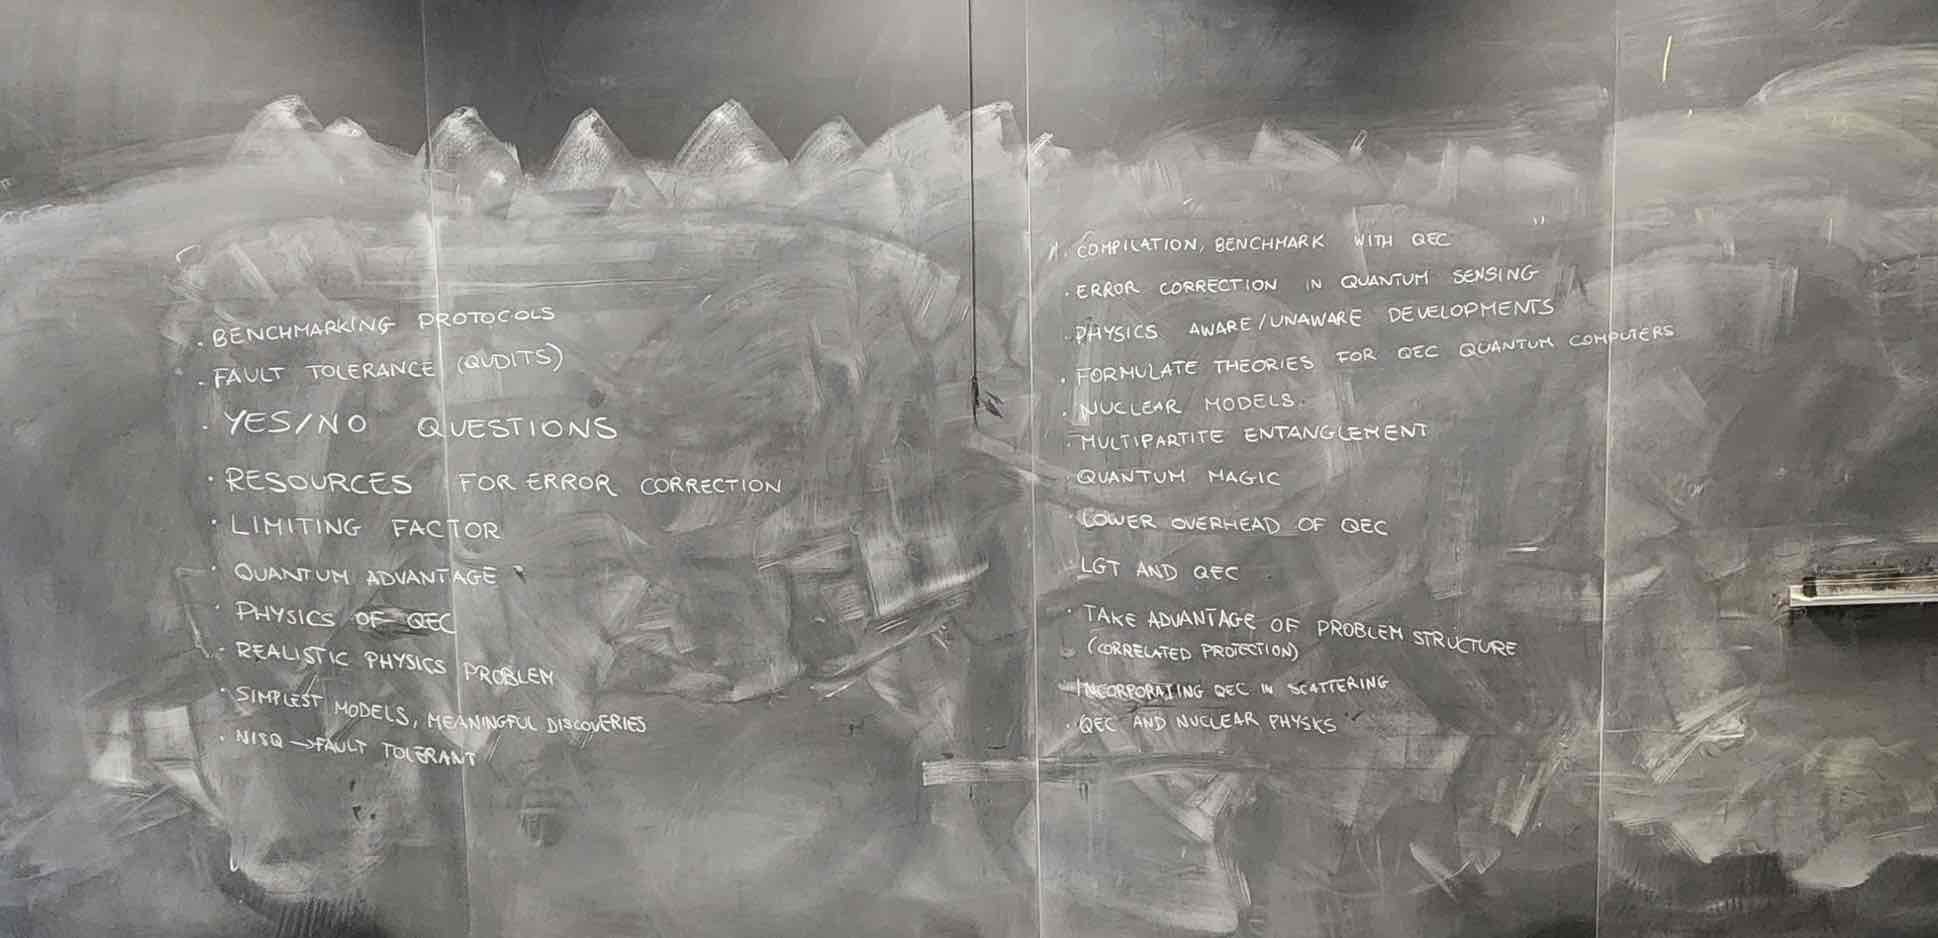 . BENCHMARKING PROTOCOLS
. FAULT TOLERANCE (QUDITS)
. YES/NO QUESTIONS
· RESOURCES FOR ERROR CORRECTION
· LIMITING FACTOR
· QUANTUM ADVANTAGE
· PHYSICS OF QEC
· REALISTIC PHYSICS PROBLEM
· SIMPLEST MODELS, MEANINGFUL DISCOVERIES
· NISQ → FAULT TOLERANT
· COMPILATION, BENCHMARK WITH QEC
· ERROR CORRECTION IN QUANTUM SENSING
· PHYSICS AWARE/UNAWARE DEVELOPMENTS
· FORMULATE THEORIES FOR QEC QUANTUM COMPUTERS
· NUCLEAR MODELS
· MULTIPARTITE ENTANGLEMENT
QUANTUM MAGIC
· LOWER OVERHEAD OF QEC
LGT AND QEC
· TAKE ADVANTAGE OF PROBLEM STRUCTURE
(CORRELATED PROTECTION)
· INCORPORATING QEC IN SCATTERING
· QEC AND NUCLEAR PHYSICS